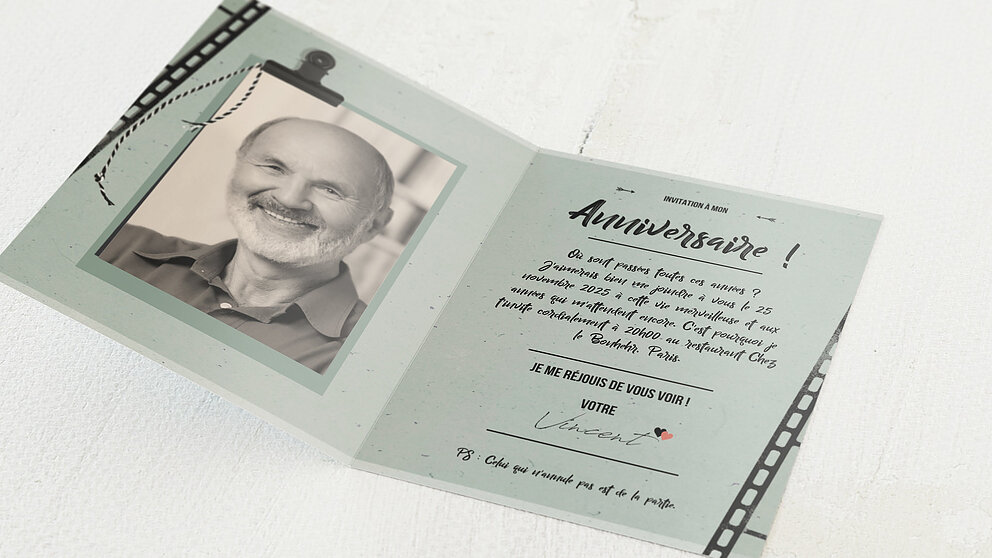 INVITATION À MON
Anniversaire !
Où sont passées toutes ces années ?
J'aimerais bien me joindre à vous le 25
novembre 2025 à cette vie merveilleuse et aux
années qui m'attendent encore. C'est pourquoi je
t'invite cordialement à 20h00 au restaurant Chez
le Bonhehr, Paris.
JE ME RÉJOUIS DE VOUS VOIR !
VOTRE
Vincent
PS : Celui qui n'annule pas est de la partie.